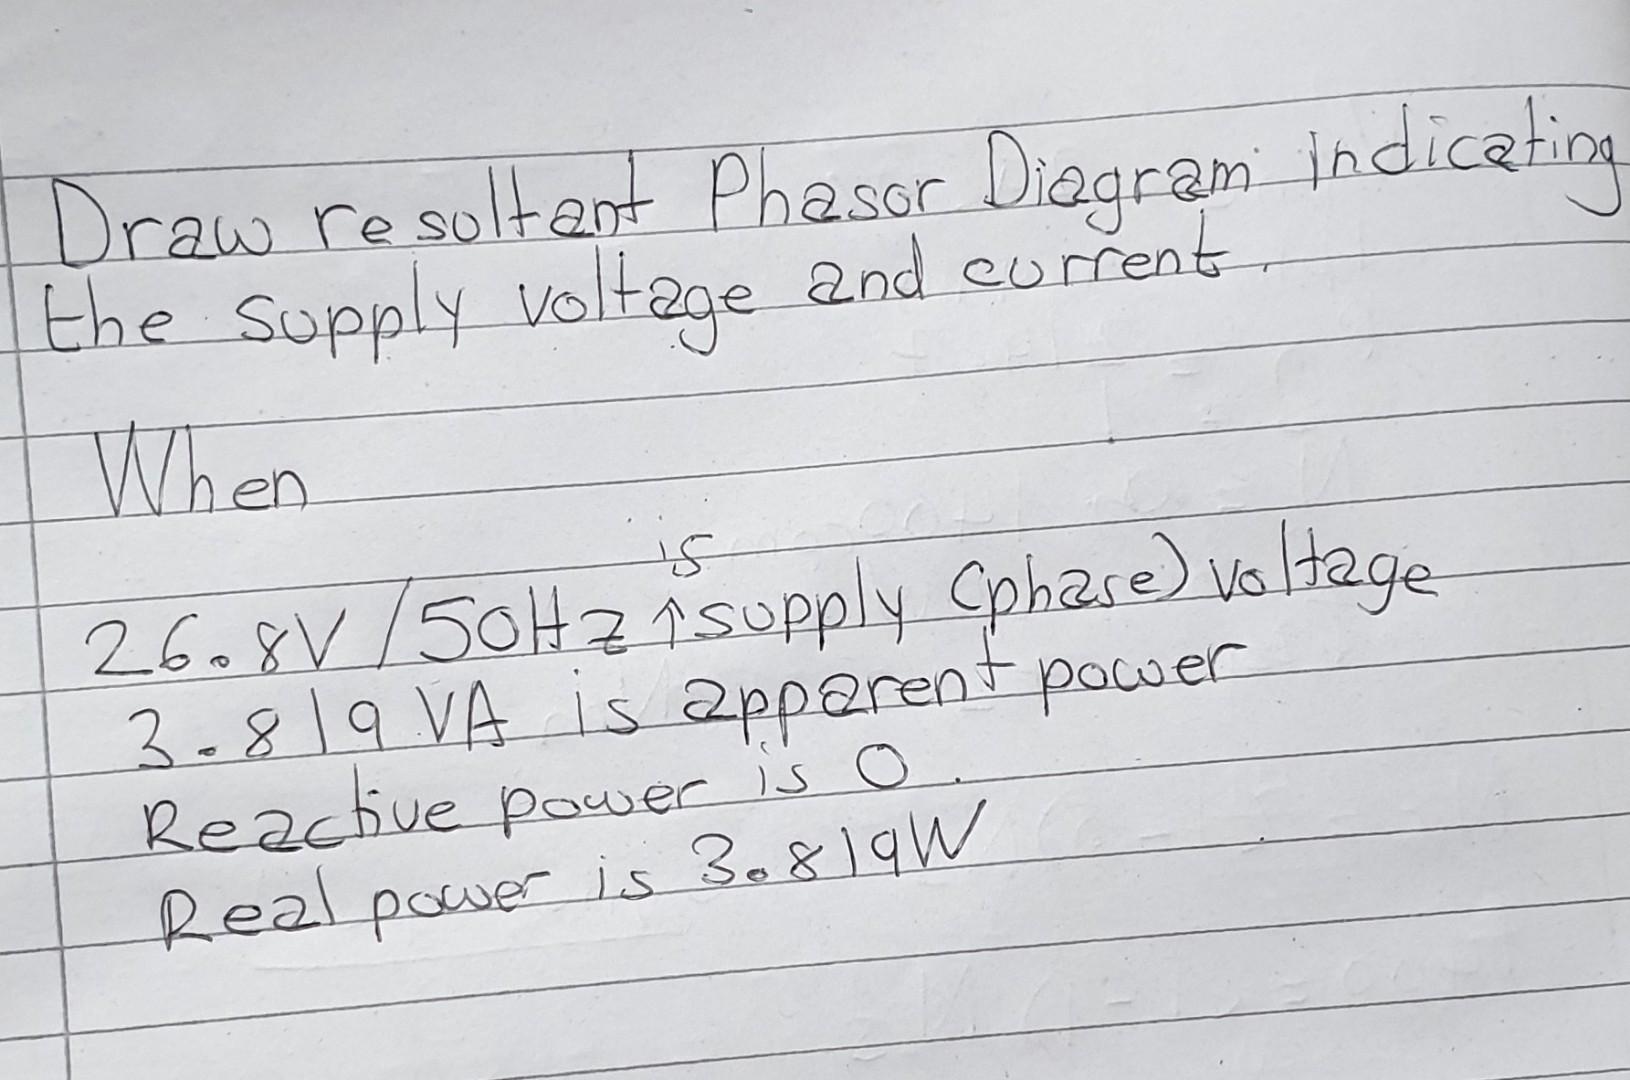 Draw resultant Phasor Diagram indicating
the supply voltage and current.
When
is
26.8V/50Hz ↑ supply (phase) voltage
3.819 VA is apparent power
Reactive power is 0.
Real power is 3.819W